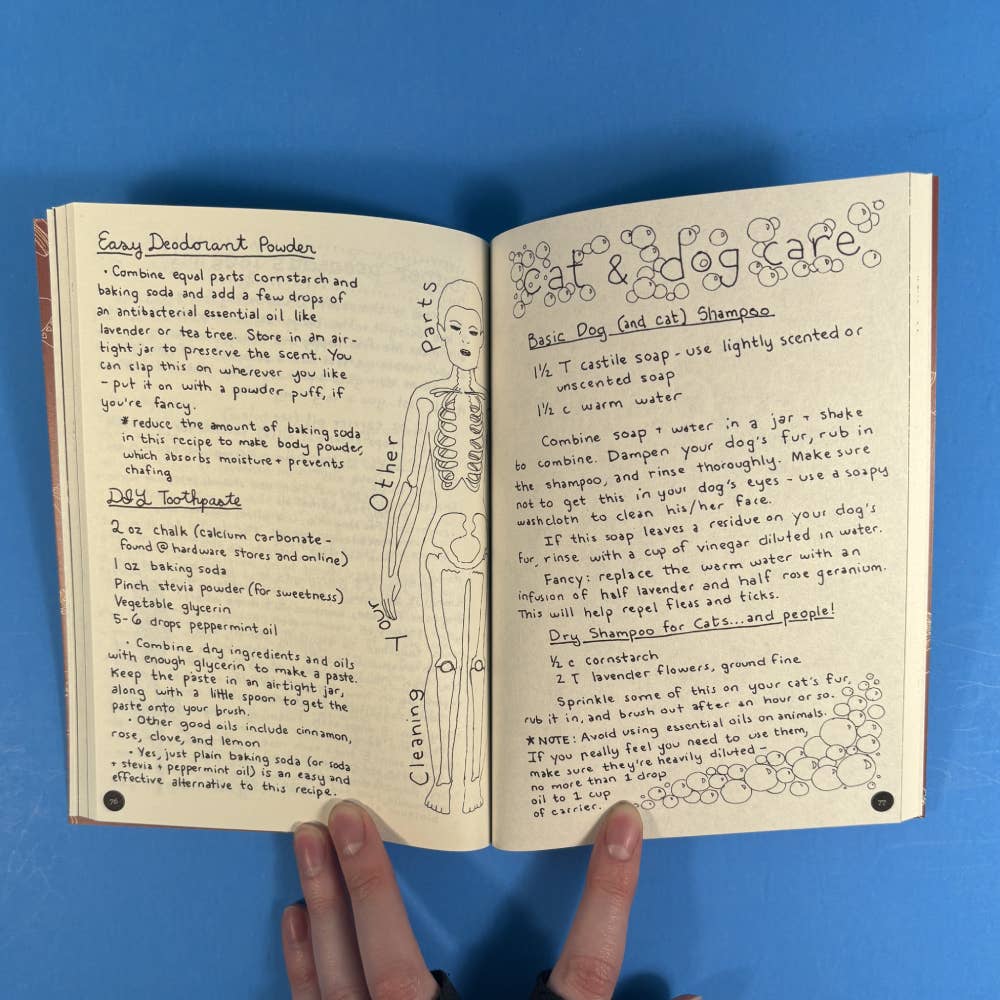 Easy Deodorant Powder
• Combine equal parts cornstarch and
baking soda and add a few drops of
an antibacterial essential oil like
lavender or tea tree. Store in an air-
tight jar to preserve the scent. You
can slap this on wherever you like
- put it on with a powder puff, if
you're fancy.
* reduce the amount of baking soda
in this recipe to make body powder,
which absorbs moisture + prevents
chafing
DIY Toothpaste
2 oz chalk (calcium carbonate -
found @ hardware stores and online)
1 oz baking soda
Pinch stevia powder (for sweetness)
Vegetable glycerin
5-6 drops peppermint oil
• Combine dry ingredients and oils
with enough glycerin to make a paste.
Keep the paste in an airtight jar,
along with a little spoon to get the
paste onto your brush.
• Other good oils include cinnamon,
rose, clove, and lemon
• Yes, just plain baking soda (or soda
+ stevia + peppermint oil) is an easy and
effective alternative to this recipe.
Cleaning Your Other Parts
76
cat & dog care
Basic Dog (and cat) Shampoo
1½ T castile soap - use lightly scented or
unscented soap
1½ c warm water
Combine soap + water in a jar + shake
to combine. Dampen your dog's fur, rub in
the shampoo, and rinse thoroughly. Make sure
not to get this in your dog's eyes - use a soapy
washcloth to clean his/her face.
If this soap leaves a residue on your dog's
fur, rinse with a cup of vinegar diluted in water.
Fancy: replace the warm water with an
infusion of half lavender and half rose geranium.
This will help repel fleas and ticks.
Dry Shampoo for Cats...and people!
½ c cornstarch
2 T lavender flowers, ground fine
Sprinkle some of this on your cat's fur,
rub it in, and brush out after an hour or so.
* NOTE: Avoid using essential oils on animals.
If you really feel you need to use them,
make sure they're heavily diluted -
no more than 1 drop
oil to 1 cup
of carrier.
77